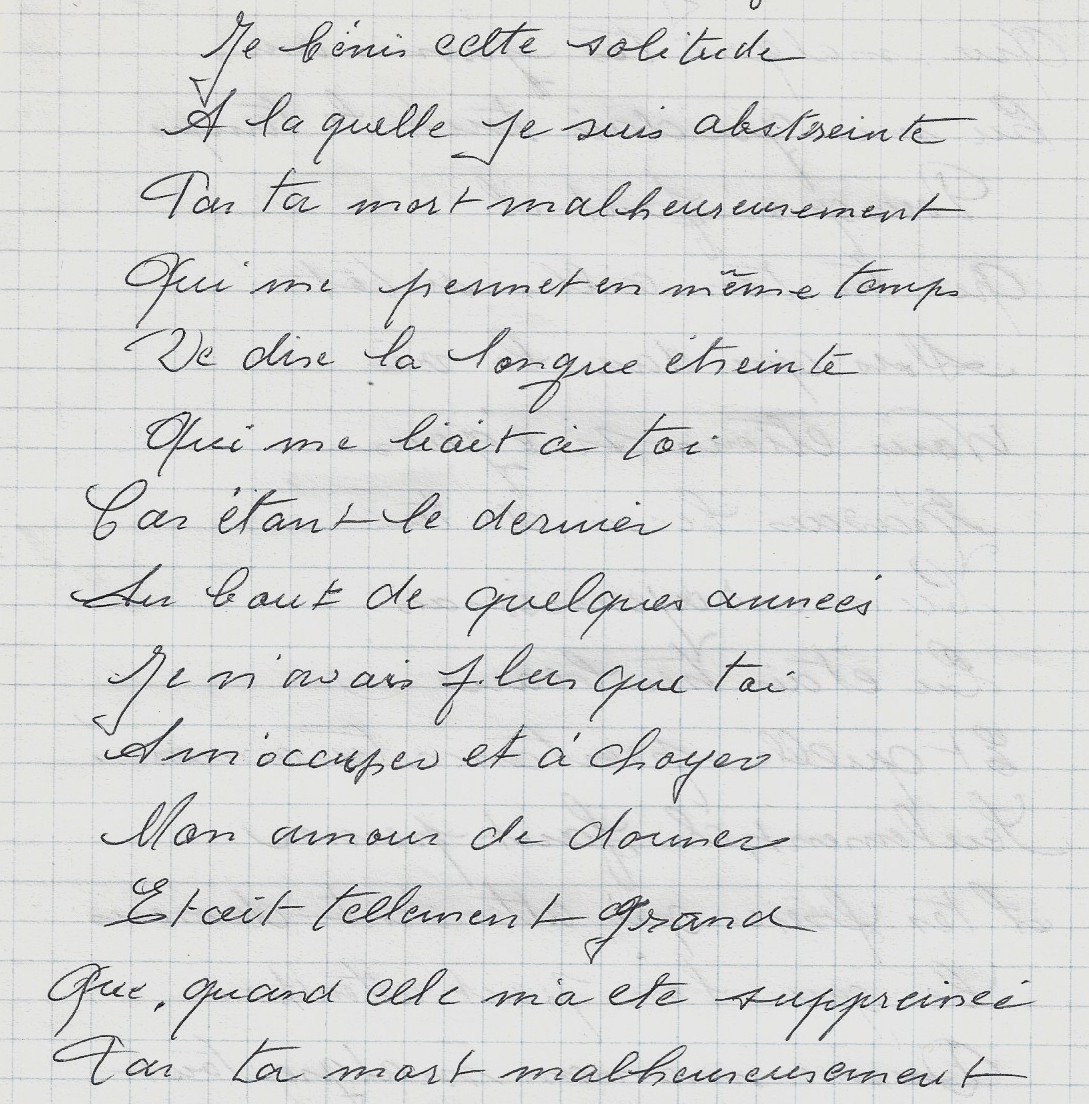 Je bénis cette solitude
A la quelle je suis abstreinte
Par ta mort malheureusement
Qui me permet en même temps
De dire la longue étreinte
Qui me liait à toi
Car étant le dernier
Au bout de quelques années
Je n'avais plus que toi
A m'occuper et à choyer
Mon amour de donner
Etait tellement grand
Que, quand elle m'a ete supprimée
Par ta mort malheureusement